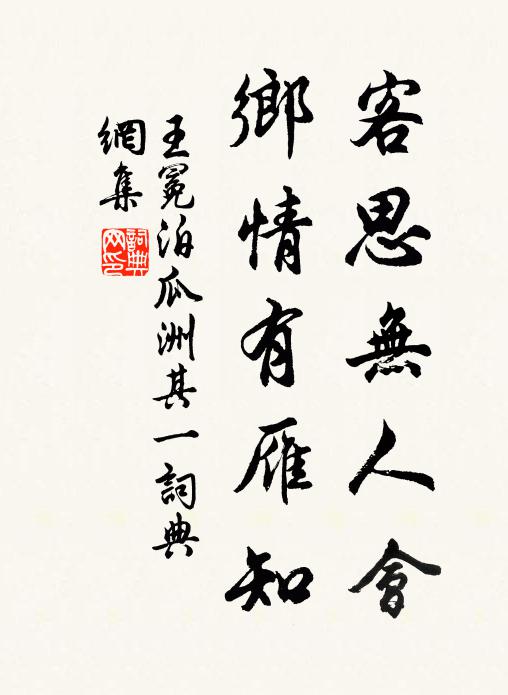 客思無人會
鄉情有雁知
王冕泊瓜洲其一詞典
網集
詞典
网印